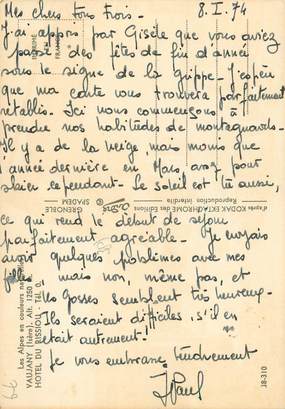 Mes chers tous Trois. 8.I.74
J'ai appris par Gisèle que vous aviez
passé des fêtes de fin d'année
sous le signe de la grippe. J'espère
que ma carte vous trouvera parfaitement
rétablis. Ici nous commençons à
prendre nos habitudes de montagnards.
Il y a de la neige mais moins que
l'année dernière en Mars, assez pour
skier cependant. Le soleil est là aussi,
ce qui rend le début de séjour
parfaitement agréable. Je croyais
avoir quelques problèmes avec mes
filles mais non, même pas, et
les gosses semblent très heureux.
Ils seraient difficiles s'il en
était autrement.
Je vous embrasse tendrement
J Paul
Les Alpes en couleurs
VAUJANY (Isère). Alt. 1250
HOTEL DU RISSIOU. Tél. 0.
IMPRIMÉ EN FRANCE
d'après KODAK EKTACHROME des Editions
Reproduction interdite
GRENOBLE
SPADEM
J8-310